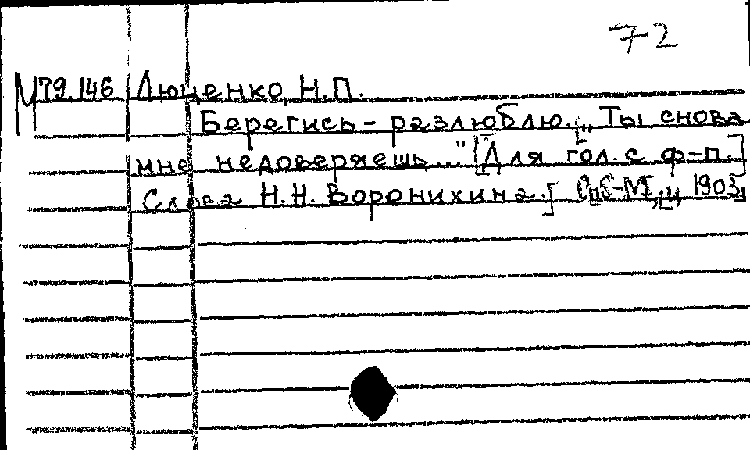 72
М79.146 Люценко, Н.П.
Берегись - разлюблю. „Ты снова
мне недоверяешь..." [Для гол. с ф-п.]
Слова Н.Н. Воронихина.] СПб-М, ц 1903,